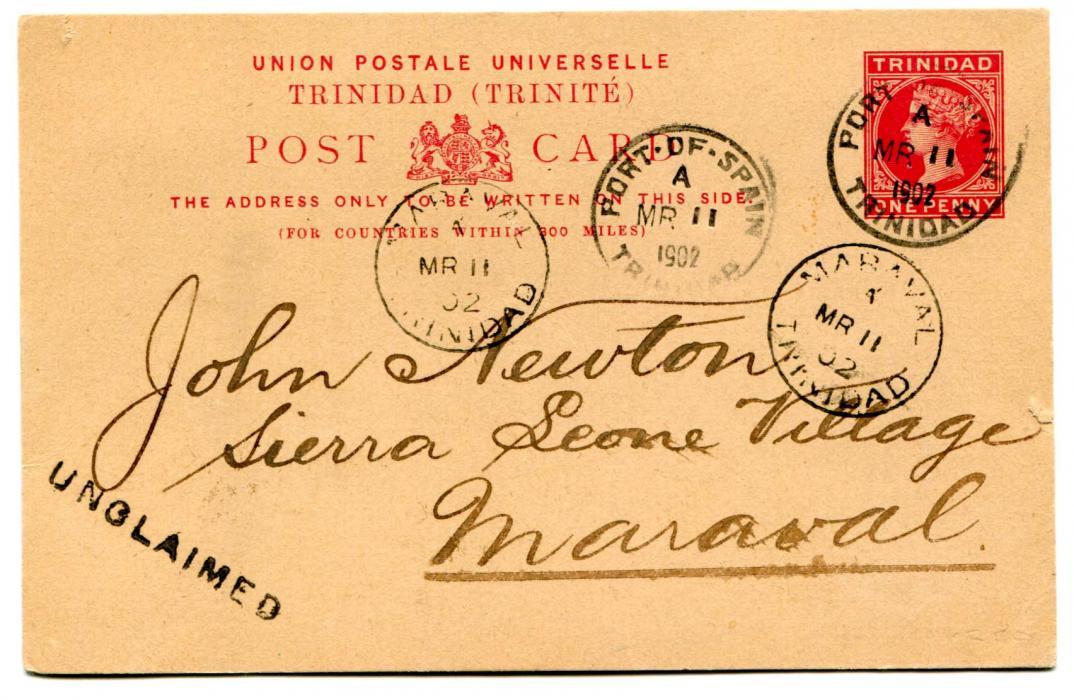 UNION POSTALE UNIVERSELLE
TRINIDAD (TRINITÉ)
POST CARD
THE ADDRESS ONLY TO BE WRITTEN ON THIS SIDE.
(FOR COUNTRIES WITHIN 300 MILES)
TRINIDAD
ONE PENNY
PORT OF SPAIN
A
MR 11
1902
TRINIDAD
PORT-OF-SPAIN
A
MR 11
1902
TRINIDAD
MARAVAL
MR 11
02
TRINIDAD
MARAVAL
MR 11
02
TRINIDAD
John Newton
Sierra Leone Village
Maraval.
UNCLAIMED